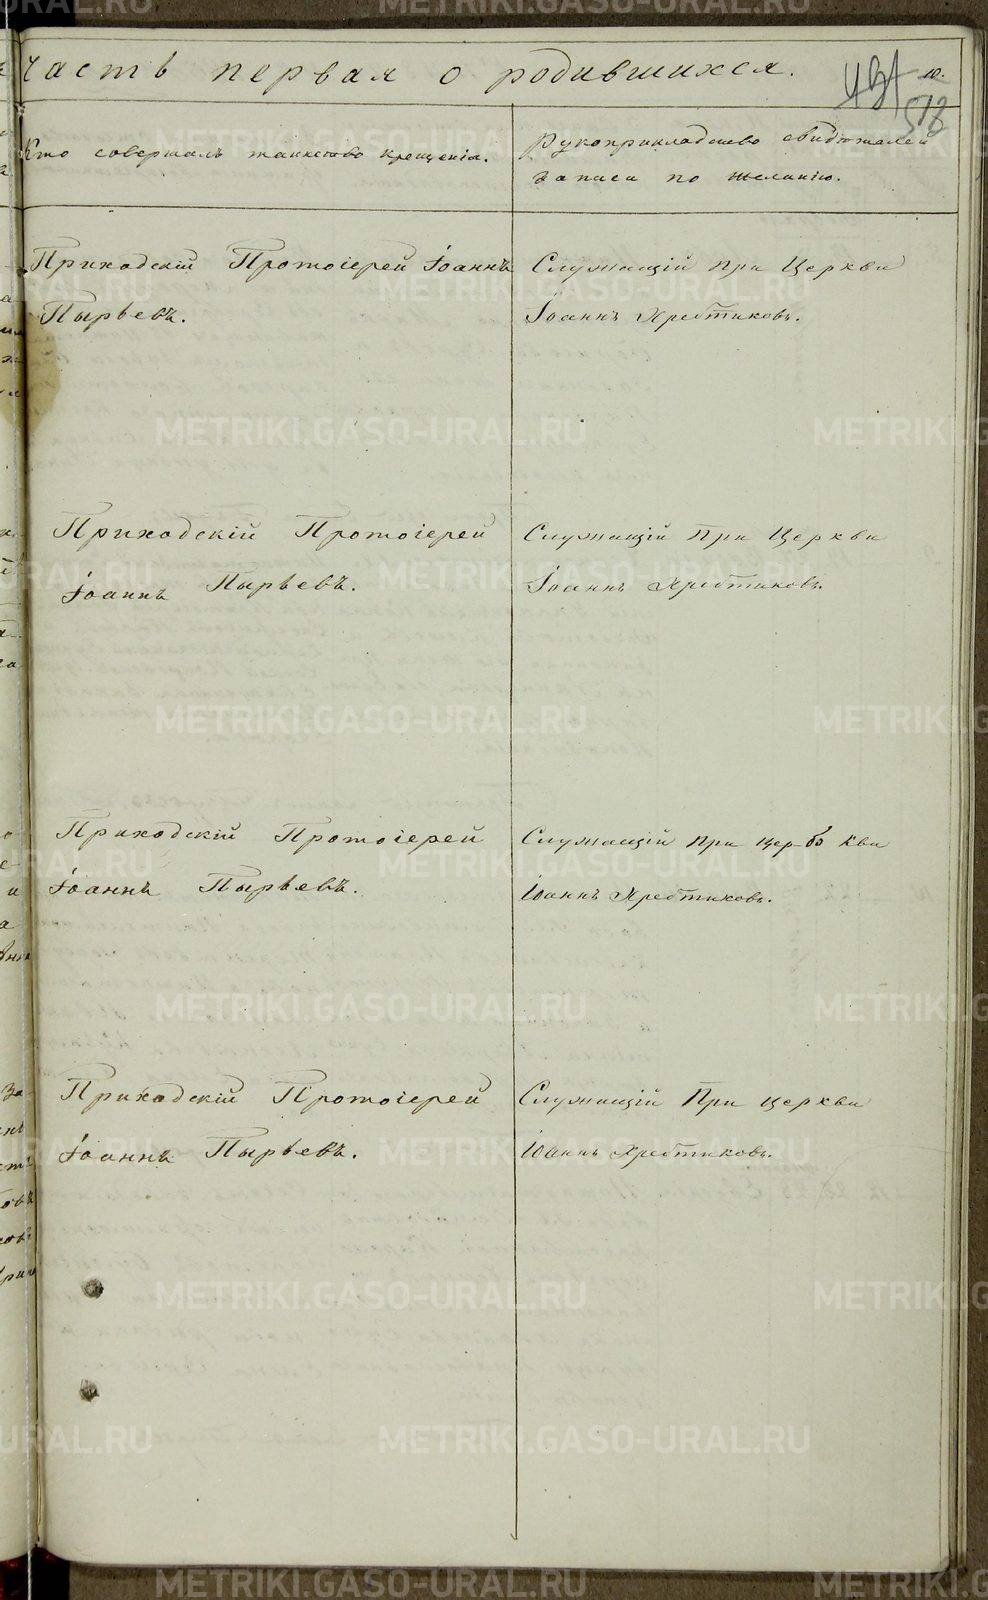 Часть первая о родившихся.
10.
518
Кто совершалъ таинство крещенія.
Рукоприкладство свидѣтелей
записи по желанію.
Приходскій Протоіерей Іоаннъ
Пырьевъ.
Служащій при Церкви
Іоаннъ Хребтиковъ.
Приходскій Протоіерей
Іоаннъ Пырьевъ.
Служащій при Церкви
Іоаннъ Хребтиковъ.
Приходскій Протоіерей
Іоаннъ Пырьевъ.
Служащій при Церкви
Іоаннъ Хребтиковъ.
Приходскій Протоіерей
Іоаннъ Пырьевъ.
Служащій При церкви
Іоаннъ Хребтиковъ.
METRIKI.GASO-URAL.RU